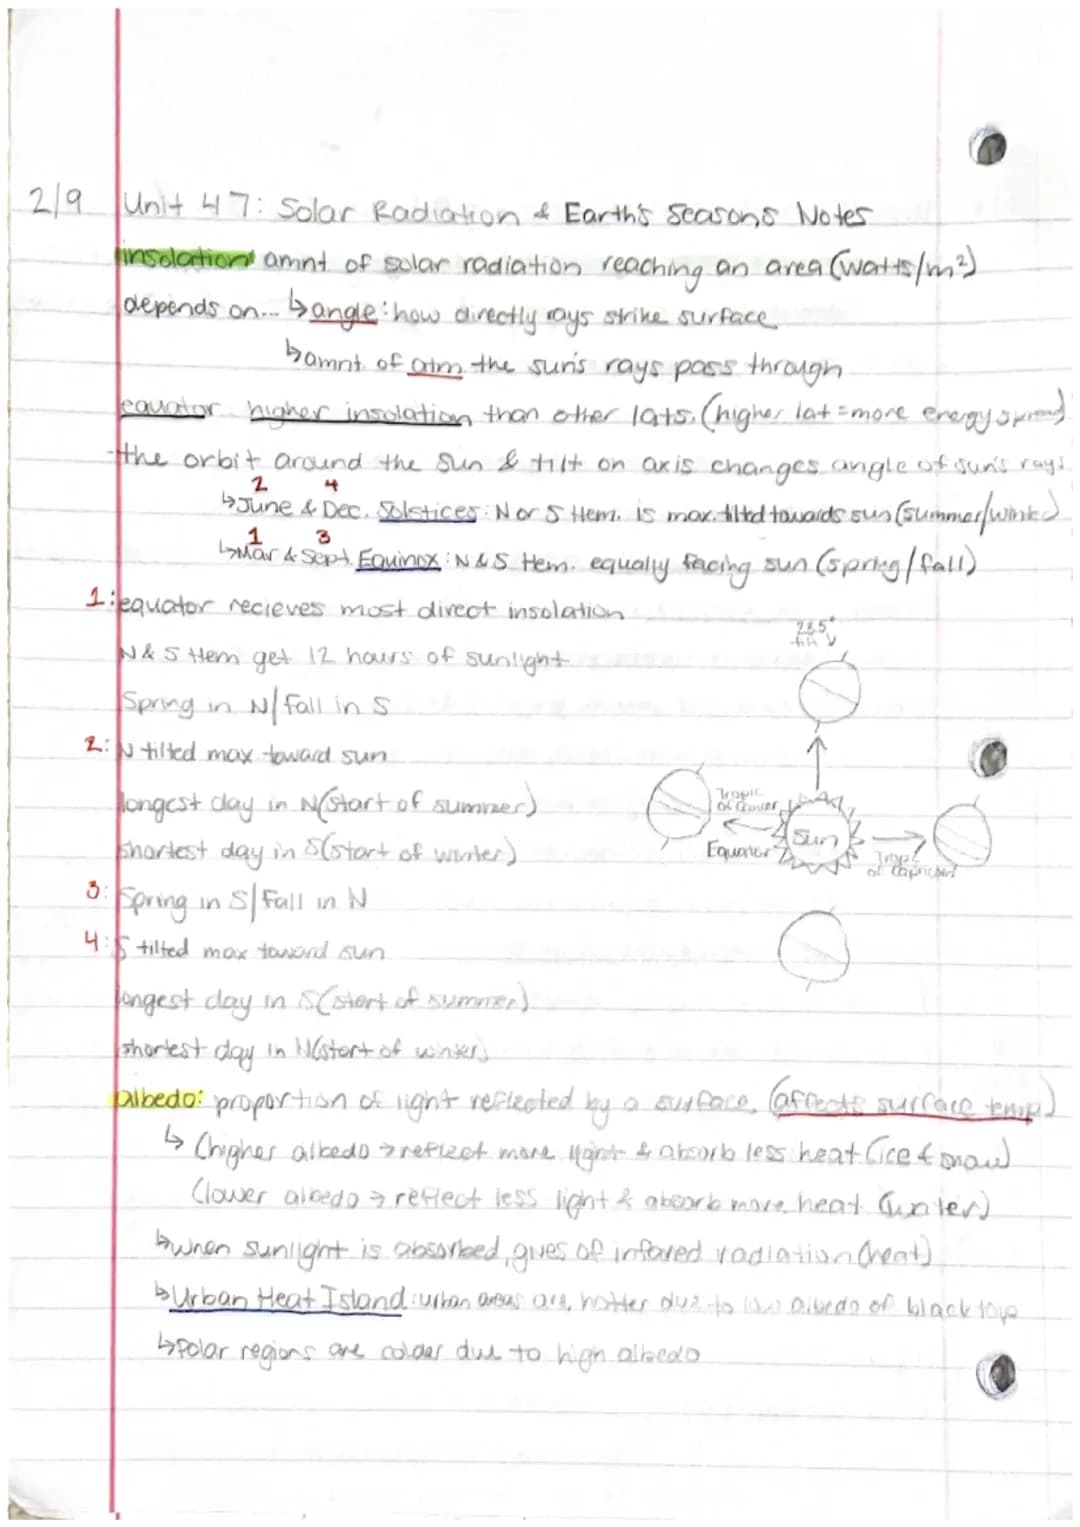 2/9 Unit 47: Solar Radiation & Earth's Seasons Notes
insolation amnt of solar radiation reaching an area (watts/m²)
depends on... ↳angle: how directly rays strike surface
↳amnt. of atm. the sun's rays pass through
equator higher insolation than other lats. (higher lat = more energy spread)
-the orbit around the sun & tilt on axis changes angle of sun's rays
2 4
↳June & Dec. Solstices: N or S Hem. is max. tilted towards sun (summer/winter)
1 3
↳Mar & Sept. Equinox: N & S Hem. equally facing sun (spring/fall)
1: equator recieves most direct insolation
N & S Hem get 12 hours of sunlight
Spring in N/Fall in S
2: N tilted max toward sun
longest day in N (start of summer)
shortest day in S (start of winter)
3: Spring in S/Fall in N
4: S tilted max toward sun
longest day in S (start of summer)
shortest day in N (start of winter)
23.5°
tilt
Tropic
of Cancer
Equator
Sun
Tropic
of Capricorn
albedo: proportion of light reflected by a surface. (affects surface temp)
↳ (higher albedo → reflect more light & absorb less heat (ice & snow)
(lower albedo → reflect less light & absorb more heat (water)
↳when sunlight is absorbed, gives of infared radiation (heat)
↳Urban Heat Island: urban areas are hotter due to low albedo of black tops
↳Polar regions are colder due to high albedo